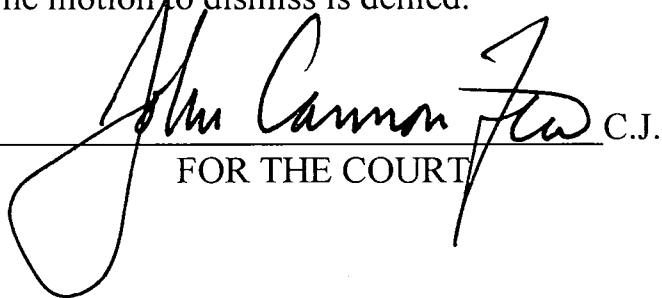 the motion to dismiss is denied.
John Cannon Few C.J.
FOR THE COURT